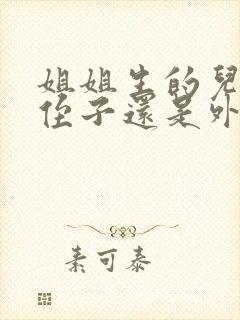 姐姐生的兒
侄子還是外
素可泰